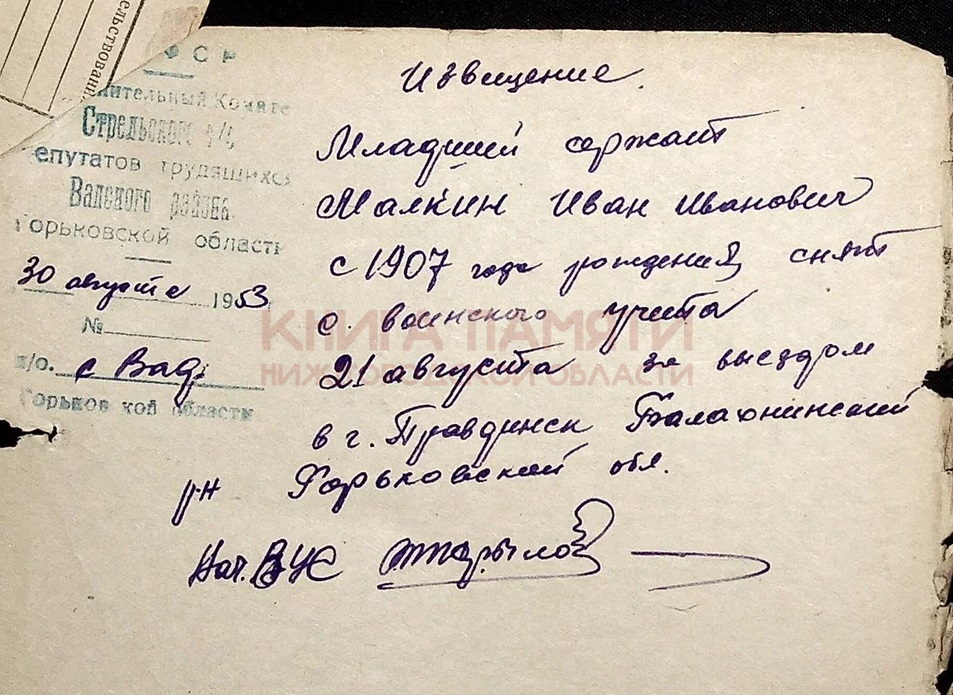 ельствовани
Извещение.
нительный Комите
Стрельского с/с
депутатов трудящихся
Вадского района
Горьковской области
30 августа 1953
№
п/о. с Вад.
Горьковской области
Младший сержант
Малкин Иван Иванович
с 1907 года рождения снят
с воинского учета
21 августа за выездом
в г. Правдинск Балахнинский
р-н Горьковской обл.
Нач. ВУС
КНИГА ПАМЯТИ
НИЖЕГОРОДСКОЙ ОБЛАСТИ